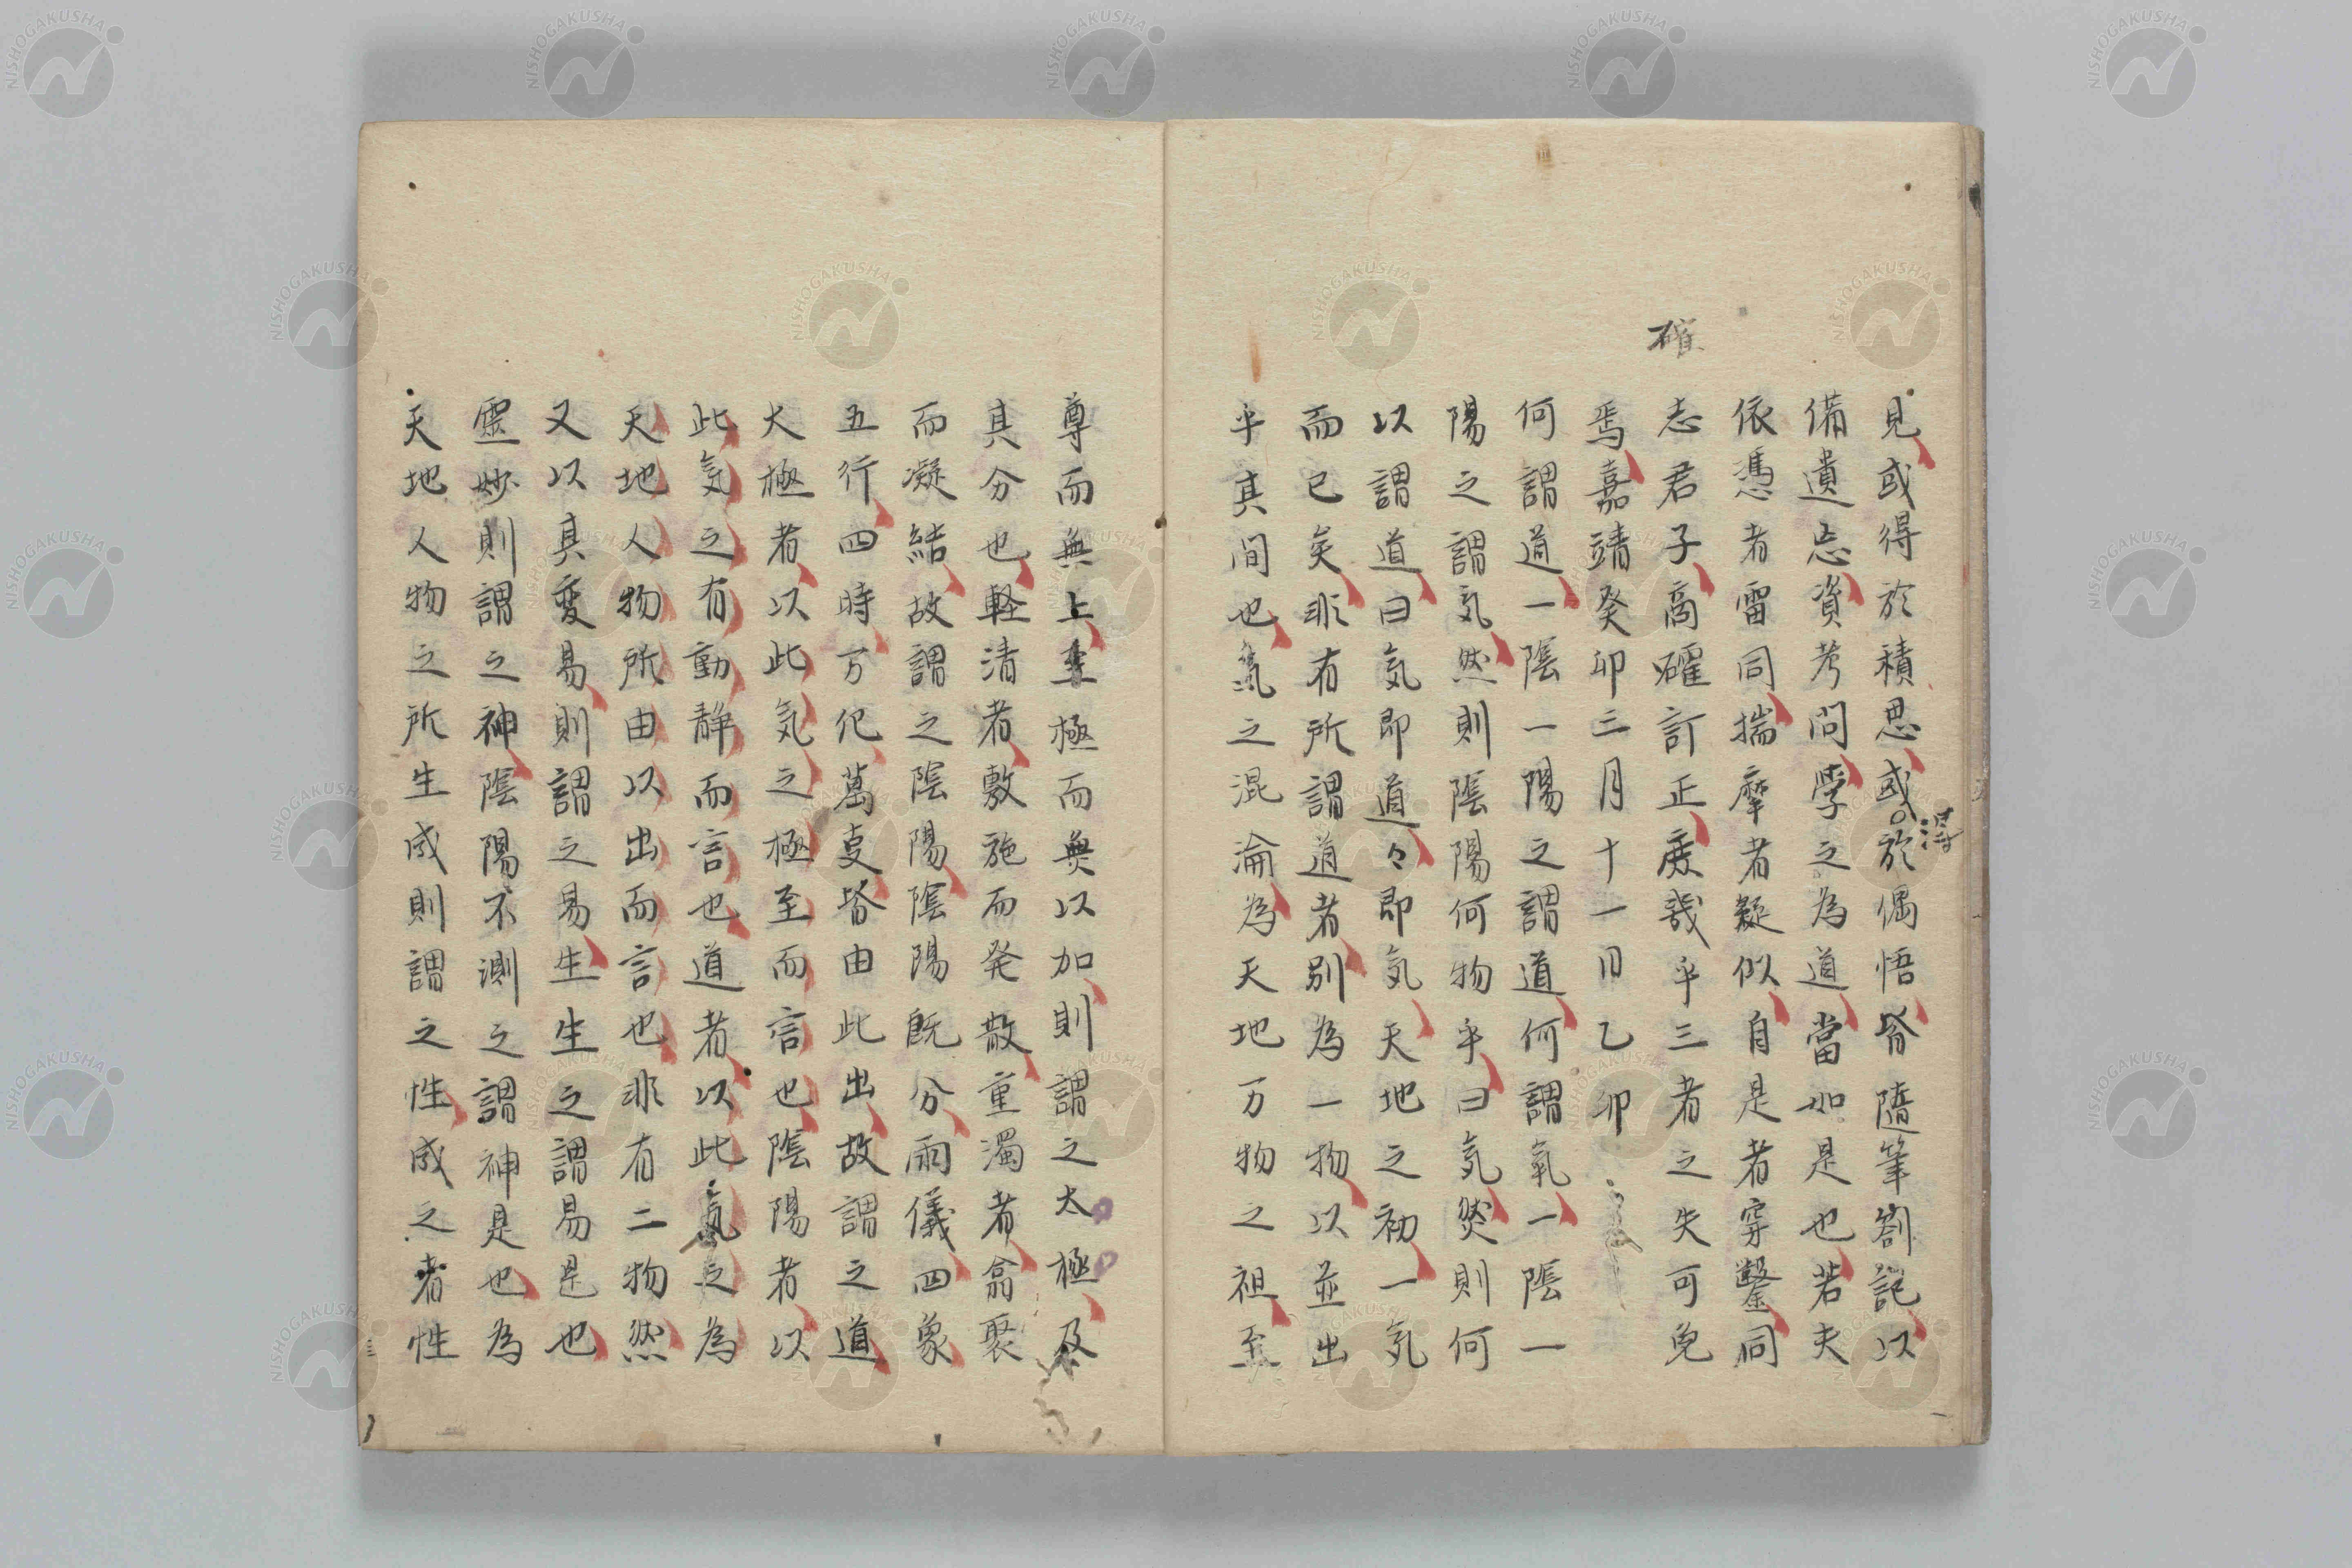 確
見或得於積思或得於偶悟皆隨筆劄記以
備遺忘資考問學之為道當如是也若夫
依憑者雷同揣摩者疑似自是者穿鑿同
志君子高確訂正庶幾乎三者之失可免
焉嘉靖癸卯三月十一日乙卯
何謂道一陰一陽之謂道何謂氣一陰一
陽之謂気然則陰陽何物乎曰気然則何
以謂道曰気即道々即気天地之初一気
而已矣非有所謂道者別為一物以並出
乎其間也氣之混淪為天地万物之祖至
尊而無上至極而無以加則謂之太極及
其分也軽清者敷施而発散重濁者翕聚
而凝結故謂之陰陽陰陽既分兩儀四象
五行四時万化萬事皆由此出故謂之道
大極者以此気之極至而言也陰陽者以
此気之有動静而言也道者以此氣之為
天地人物所由以出而言也非有二物然
又以其変易則謂之易生生之謂易是也
靈妙則謂之神陰陽不測之謂神是也為
天地人物之所生成則謂之性成之者性
NISHOGAKUSHA